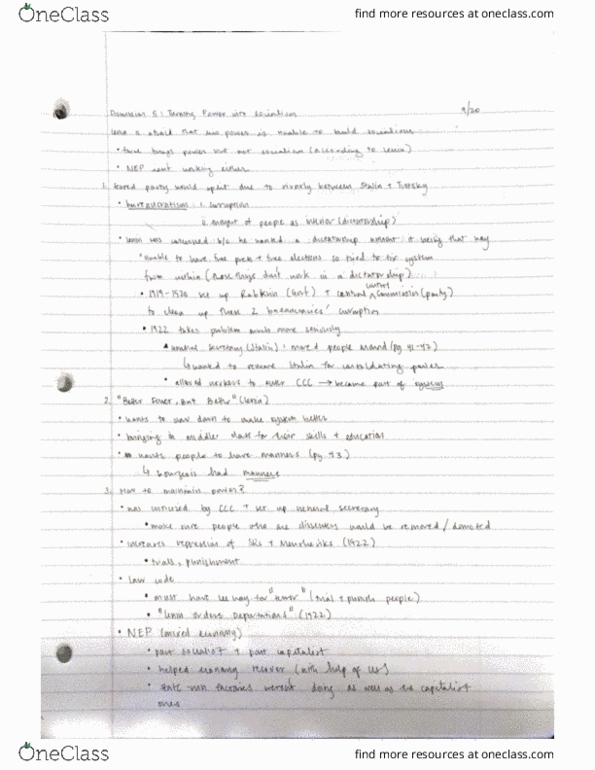 OneClass
find more resources at oneclass.com
9/20
Discussion 5: Turning Power into socialism
Lenin is afraid that his power is unable to build socialism
• force brings power but not socialism (according to Lenin)
• NEP isn't working either
1. feared party would split due to rivalry between Stalin + Trotsky
• bureaucratism: 1. corruption
2. treatment of people as inferior (dictatorship)
• Lenin was concerned b/c he wanted a dictatorship without it being that way
• Unable to have free press + free elections so tried to fix system
from within (those things don't work in a dictatorship)
• 1919-1920 set up Rabkrin (Govt) + central control commission (party)
to clean up these 2 bureaucracies' corruption
• 1922 takes problem much more seriously
General Secretary (Stalin): moved people around (pg 41-42)
↳ wanted to remove Stalin for consolidating power
• allowed workers to enter CCC → became part of system
2. "Better Fewer, But Better" (Lenin)
• wants to slow down to make system better
• bringing in middle class for their skills + education
• wants people to have manners (pg 43)
↳ bourgeois had manners
3. How to maintain power?
• was utilized by CCC + set up general secretary
• make sure people who are dissenters would be removed/demoted
• increases repression of SRs + Mensheviks (1922)
• trials, punishment
• Law code
• must have leeway for "terror" (trial + punish people)
• "Lenin orders Deportations" (1922)
• NEP (mixed economy)
• part socialist + part capitalist
• helped economy recover (with help of US)
• state run factories weren't doing as well as the capitalist
ones
OneClass
find more resources at oneclass.com